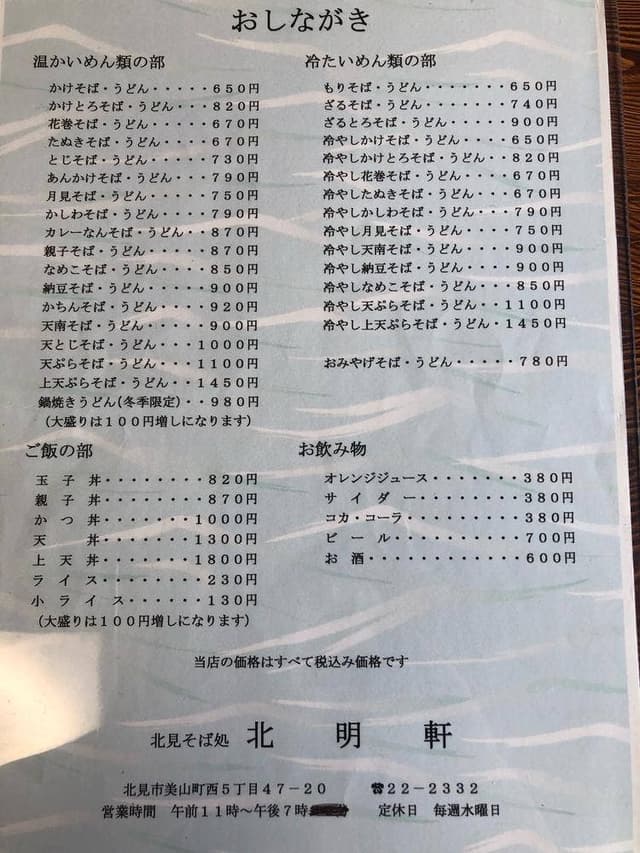 おしながき
温かいめん類の部
かけそば・うどん・・・・・650円
かけとろそば・うどん・・・820円
花巻そば・うどん・・・・・670円
たぬきそば・うどん・・・・670円
とじそば・うどん・・・・・730円
あんかけそば・うどん・・・790円
月見そば・うどん・・・・・750円
かしわそば・うどん・・・・790円
カレーなんそば・うどん・・870円
親子そば・うどん・・・・・870円
なめこそば・うどん・・・・850円
納豆そば・うどん・・・・・900円
かちんそば・うどん・・・・920円
天南そば・うどん・・・・・900円
天とじそば・うどん・・・1000円
天ぷらそば・うどん・・・1100円
上天ぷらそば・うどん・・1450円
鍋焼きうどん(冬季限定)・・980円
(大盛りは100円増しになります)
冷たいめん類の部
もりそば・うどん・・・・・・・650円
ざるそば・うどん・・・・・・・740円
ざるとろそば・うどん・・・・・900円
冷やしかけそば・うどん・・・・650円
冷やしかけとろそば・うどん・・820円
冷やし花巻そば・うどん・・・・670円
冷やしたぬきそば・うどん・・・670円
冷やしかしわそば・うどん・・・790円
冷やし月見そば・うどん・・・・750円
冷やし天南そば・うどん・・・・900円
冷やし納豆そば・うどん・・・・900円
冷やしなめこそば・うどん・・・850円
冷やし天ぷらそば・うどん・・1100円
冷やし上天ぷらそば・うどん・1450円
おみやげそば・うどん・・・・・780円
ご飯の部
玉子丼・・・・・・・・820円
親子丼・・・・・・・・870円
かつ丼・・・・・・・1000円
天丼・・・・・・・・1300円
上天丼・・・・・・・1800円
ライス・・・・・・・・230円
小ライス・・・・・・・130円
(大盛りは100円増しになります)
お飲み物
オレンジジュース・・・・・・・380円
サイダー・・・・・・・・・・・380円
コカ・コーラ・・・・・・・・・380円
ビール・・・・・・・・・・・・700円
お酒・・・・・・・・・・・・・600円
当店の価格はすべて税込み価格です
北見そば処 北明軒
北見市美山町西5丁目47-20 ☎22-2332
営業時間 午前11時～午後7時 定休日 毎週水曜日